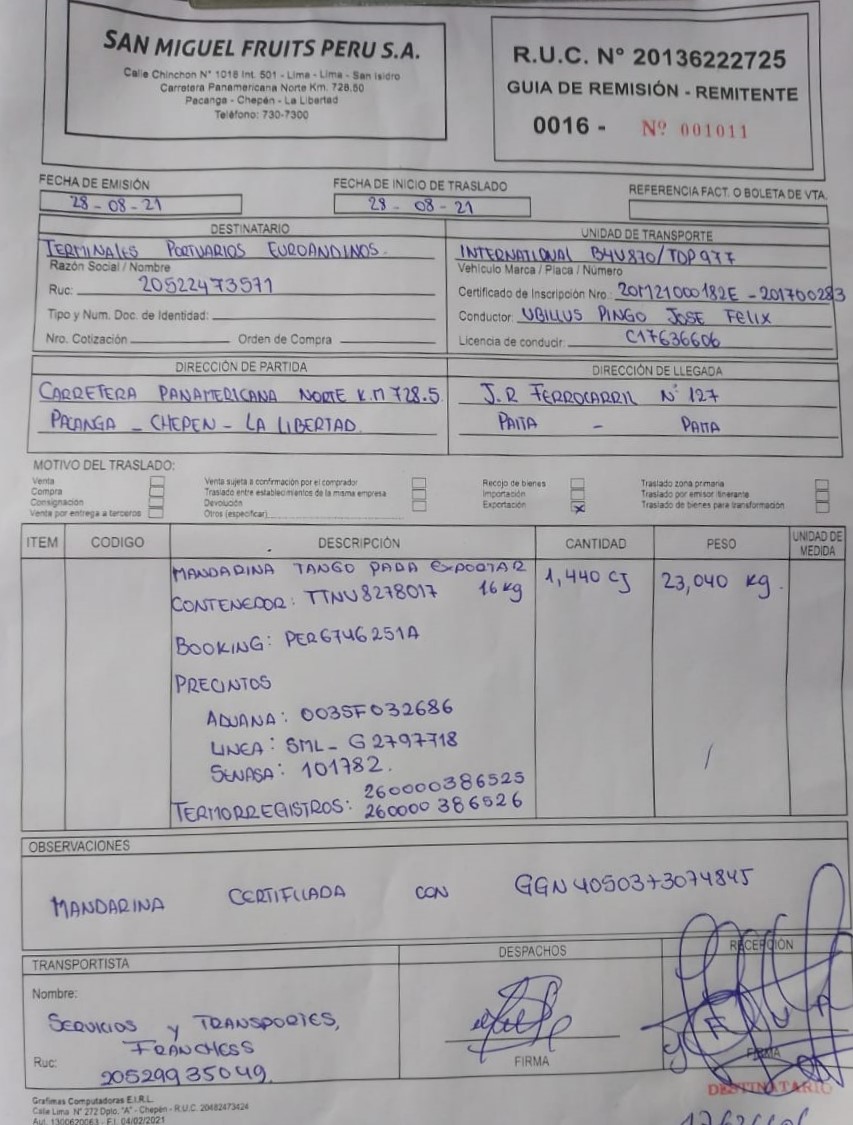 SAN MIGUEL FRUITS PERU S.A.
Calle Chinchon N° 1018 Int. 501 - Lima - Lima - San Isidro
Carretera Panamericana Norte Km. 728.50
Pacanga - Chepén - La Libertad
Teléfono: 730-7300
R.U.C. N° 20136222725
GUIA DE REMISIÓN - REMITENTE
0016 - Nº 001011
FECHA DE EMISIÓN
28 - 08 - 21
FECHA DE INICIO DE TRASLADO
28 - 08 - 21
REFERENCIA FACT. O BOLETA DE VTA.
DESTINATARIO
TERMINALES PORTUARIOS EUROANDINOS.
Razón Social / Nombre
Ruc: 20522473571
Tipo y Num. Doc. de Identidad:
Nro. Cotización Orden de Compra
UNIDAD DE TRANSPORTE
INTERNATIONAL B4U870/TOP977
Vehículo Marca / Placa / Número
Certificado de Inscripción Nro.: 20M2100182E - 201700283
Conductor: UBILLUS PINGO JOSE FELIX
Licencia de conducir: C17636606
DIRECCIÓN DE PARTIDA
CARRETERA PANAMERICANA NORTE K.M 728.5
PACANGA - CHEPEN - LA LIBERTAD.
DIRECCIÓN DE LLEGADA
J.R FERROCARRIL N° 127
PAITA - PAITA
MOTIVO DEL TRASLADO:
Venta
Compra
Consignación
Venta por entrega a terceros
Venta sujeta a confirmación por el comprador
Traslado entre establecimientos de la misma empresa
Devolución
Otros (especificar)
Recojo de bienes
Importación
Exportación x
Traslado zona primaria
Traslado por emisor itinerante
Traslado de bienes para transformación
ITEM CODIGO DESCRIPCIÓN CANTIDAD PESO UNIDAD DE MEDIDA
MANDARINA TANGO PARA EXPORTAR 1,440 CJ 23,040 kg.
CONTENEDOR: TTNU8278017 16 kg
BOOKING: PER6746251A
PRECINTOS
ADUANA: 0035F032686
LINEA: SML - G2797718
SENASA: 101782.
260000386525
TERMORREGISTROS: 260000386526
OBSERVACIONES
MANDARINA CERTIFICADA CON GGN 4050373074845
TRANSPORTISTA
Nombre:
SERVICIOS y TRANSPORTES,
FRANCHESS
Ruc: 20529935049.
DESPACHOS
FIRMA
RECEPCIÓN
FIRMA
DESTINATARIO
Grafimas Computadoras E.I.R.L.
Calle Lima N° 272 Dpto. "A" - Chepén - R.U.C. 20482473424
Aut. 1300620063 - F.I. 04/02/2021